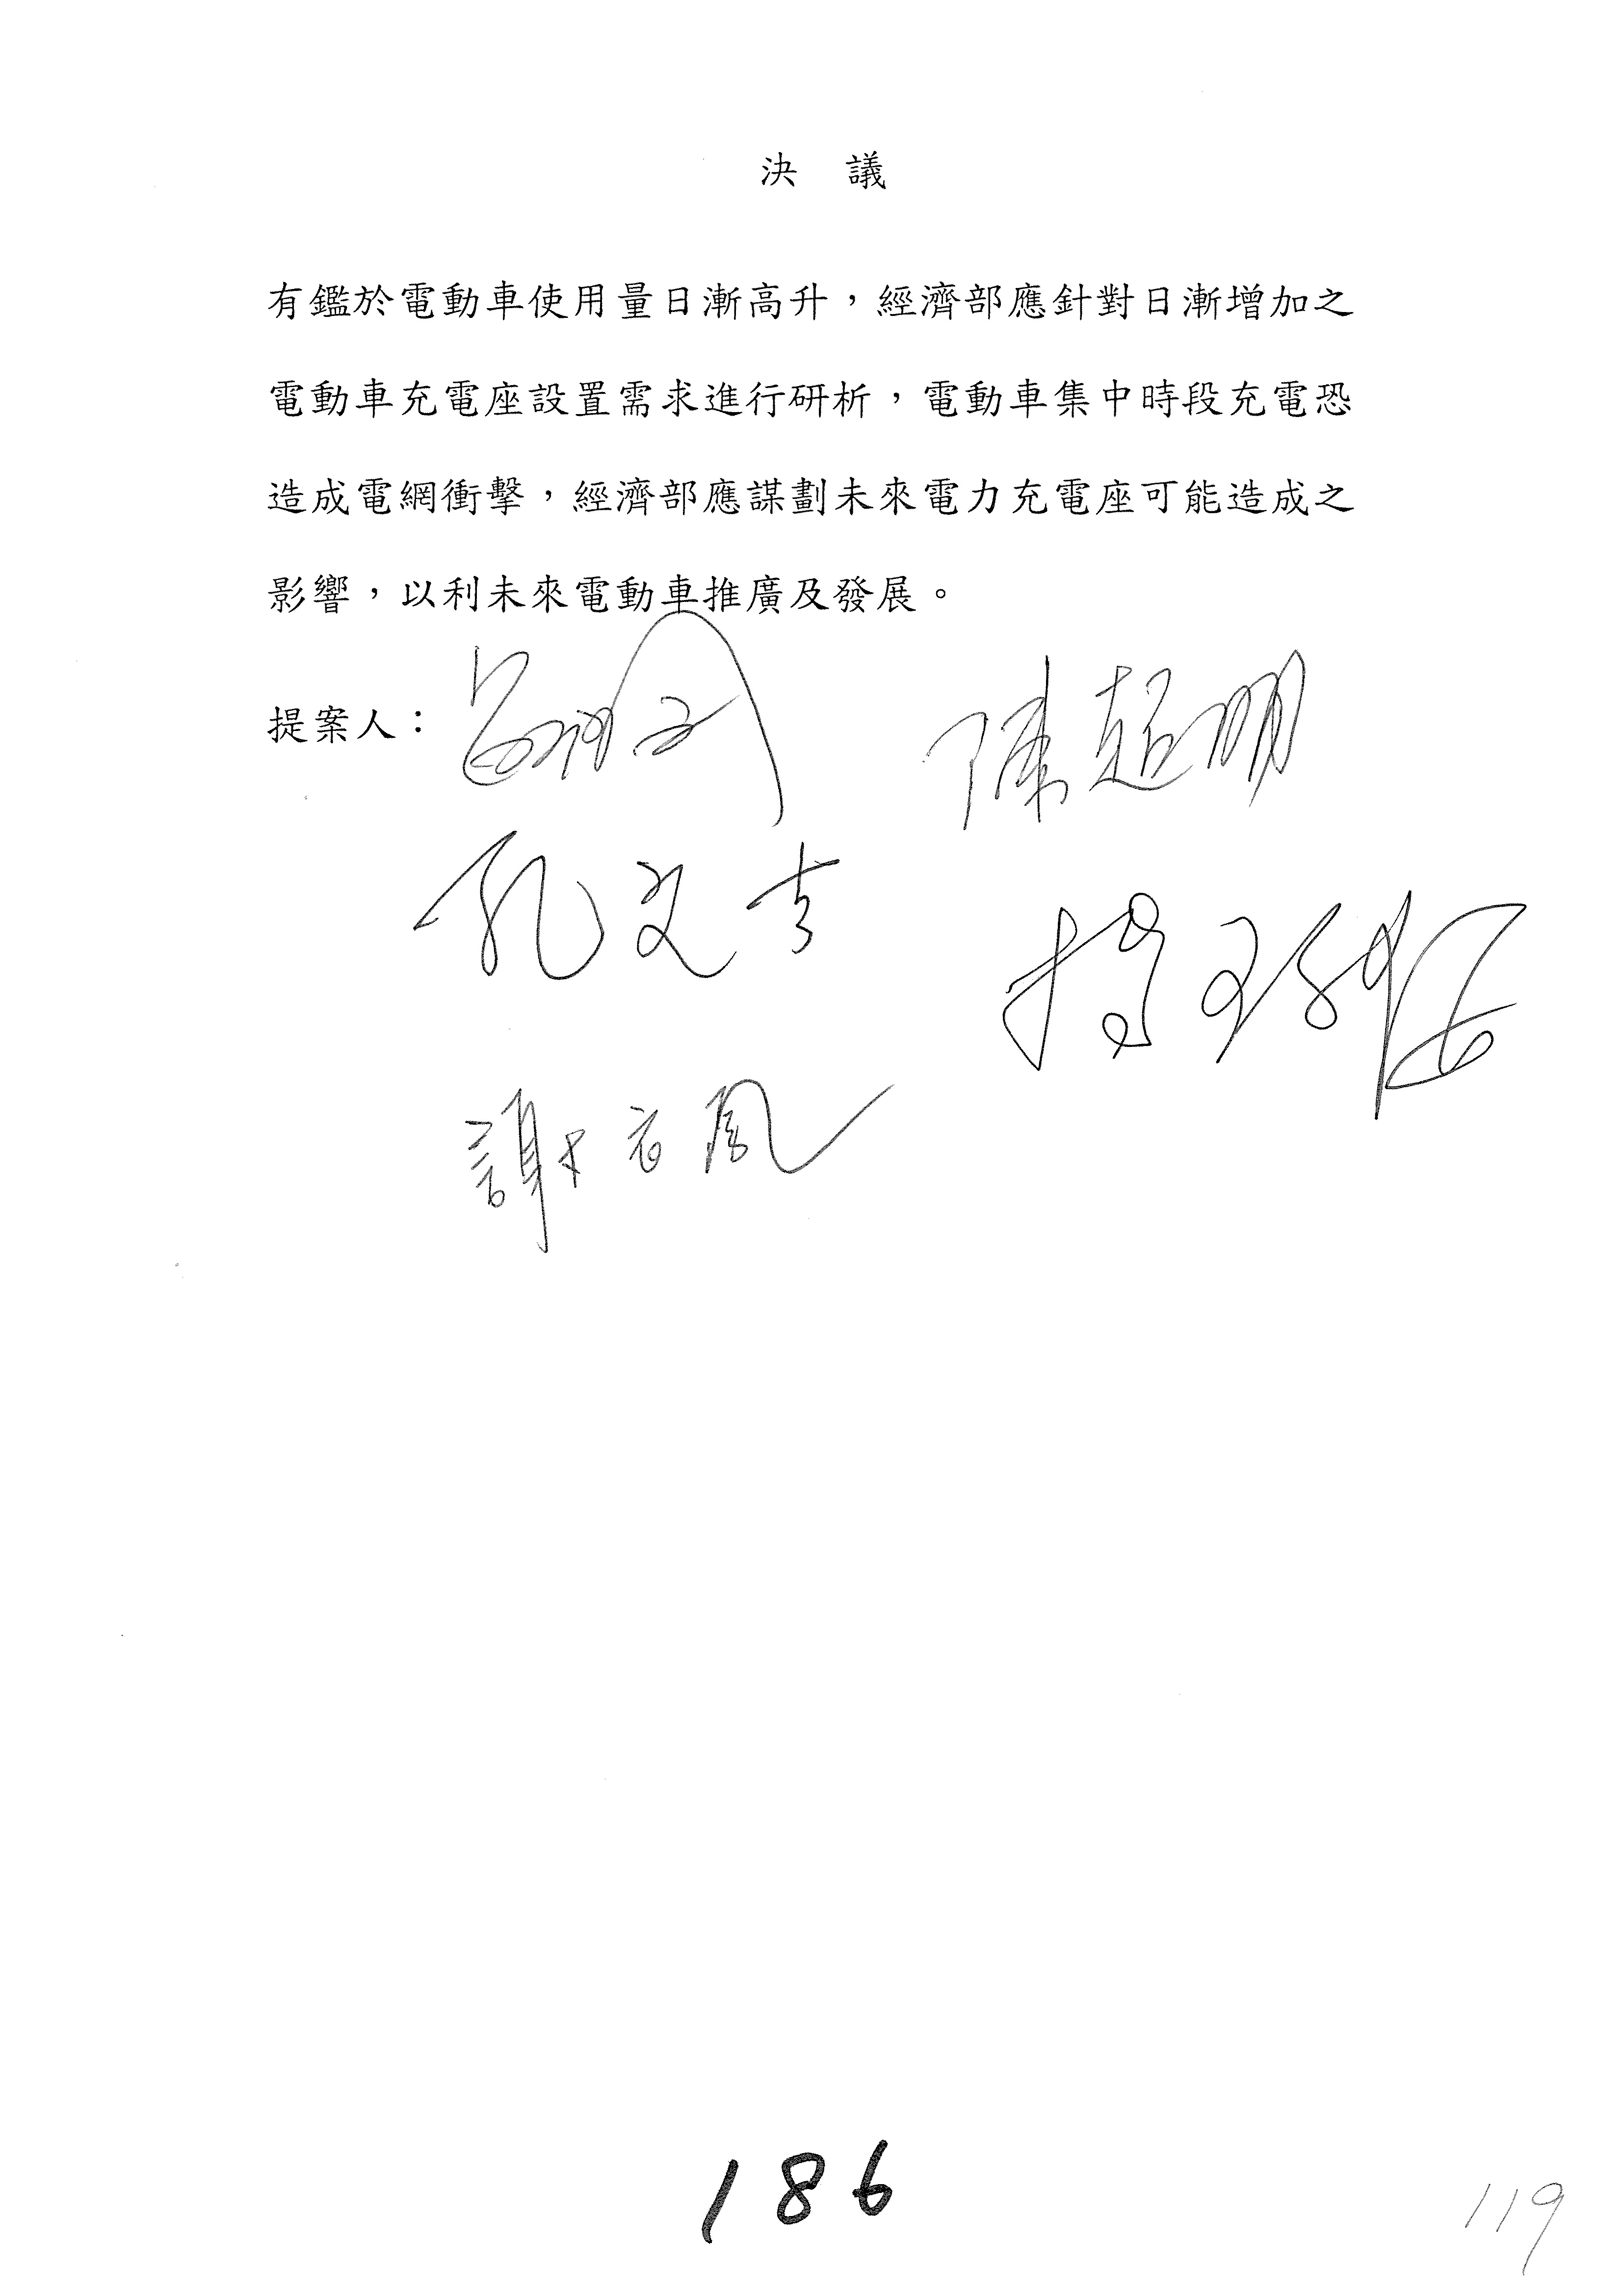 決 議
有鑑於電動車使用量日漸高升，經濟部應針對日漸增加之
電動車充電座設置需求進行研析，電動車集中時段充電恐
造成電網衝擊，經濟部應謀劃未來電力充電座可能造成之
影響，以利未來電動車推廣及發展。
提案人：
陳超明
孔文吉
謝衣鳯
186
119